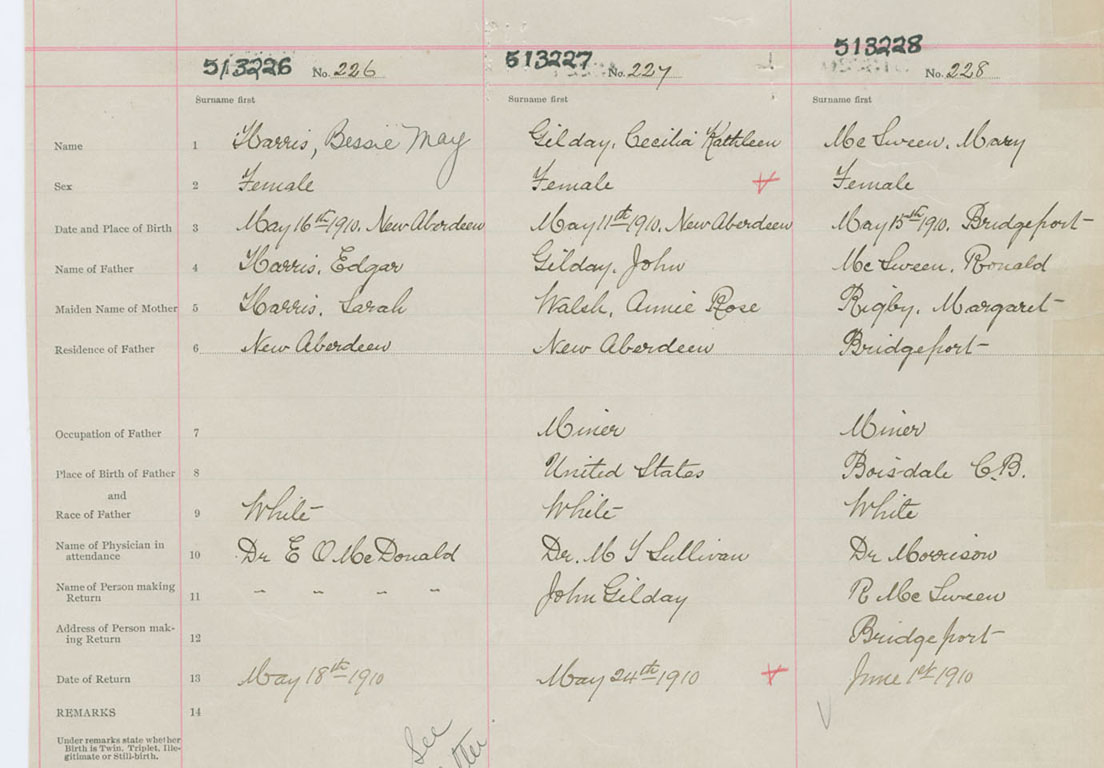 513226 No. 226 513227 No. 227 513228 No. 228
Surname first Surname first Surname first
Name 1 Harris, Bessie May Gilday, Cecilia Kathleen Mc Sween, Mary
Sex 2 Female Female Female
Date and Place of Birth 3 May 16th 1910, New Aberdeen May 11th 1910, New Aberdeen May 15th 1910, Bridgeport
Name of Father 4 Harris, Edgar Gilday, John Mc Sween, Ronald
Maiden Name of Mother 5 Harris, Sarah Walsh, Annie Rose Rigby, Margaret
Residence of Father 6 New Aberdeen New Aberdeen Bridgeport
Occupation of Father 7 Miner Miner
Place of Birth of Father 8 United States Boisdale C.B.
and
Race of Father 9 White White White
Name of Physician in
attendance 10 Dr E O McDonald Dr. M T Sullivan Dr Morrison
Name of Person making
Return 11 " " " " John Gilday R Mc Sween
Address of Person mak-
ing Return 12 Bridgeport
Date of Return 13 May 18th 1910 May 24th 1910 June 1st 1910
REMARKS 14
Under remarks state whether
Birth is Twin, Triplet, Ille-
gitimate or Still-birth.
See